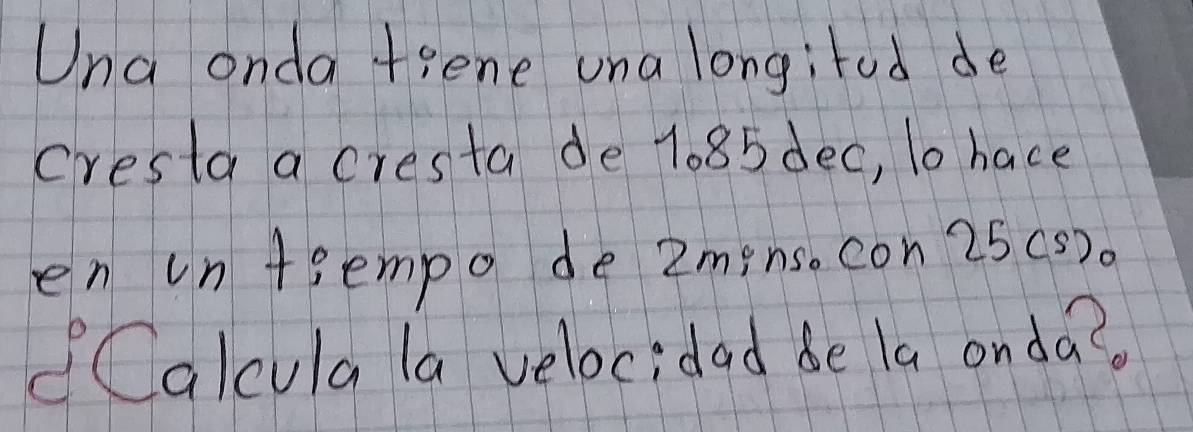 Una onda tiene una longitud de
cresta a cresta de 1.85 dec, lo hace
en un tiempo de 2 mins. con 25 (s).
¿Calcula la velocidad de la onda?.